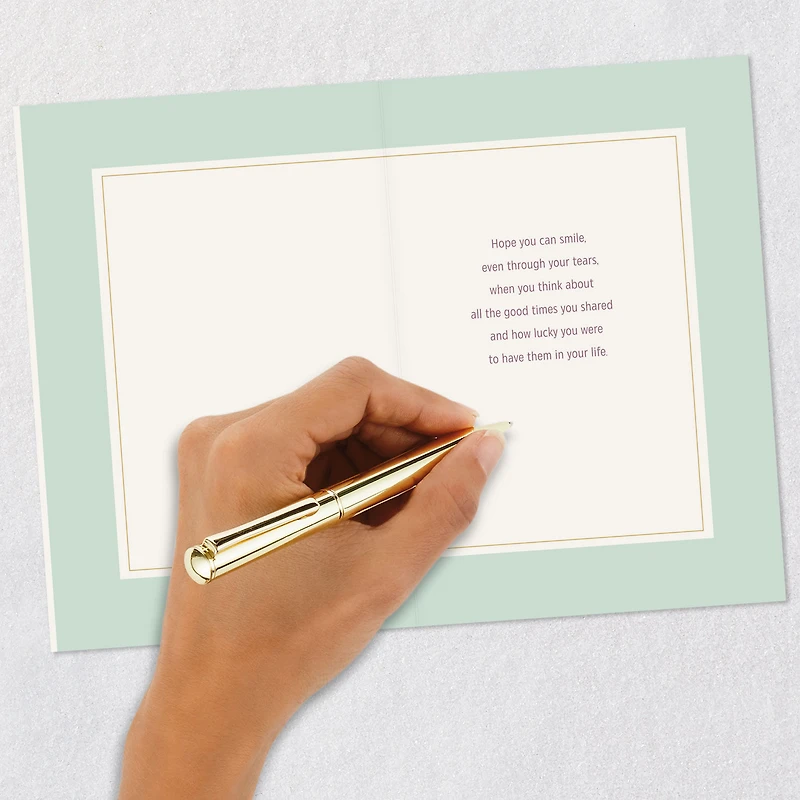 Hope you can smile,
even through your tears,
when you think about
all the good times you shared
and how lucky you were
to have them in your life.